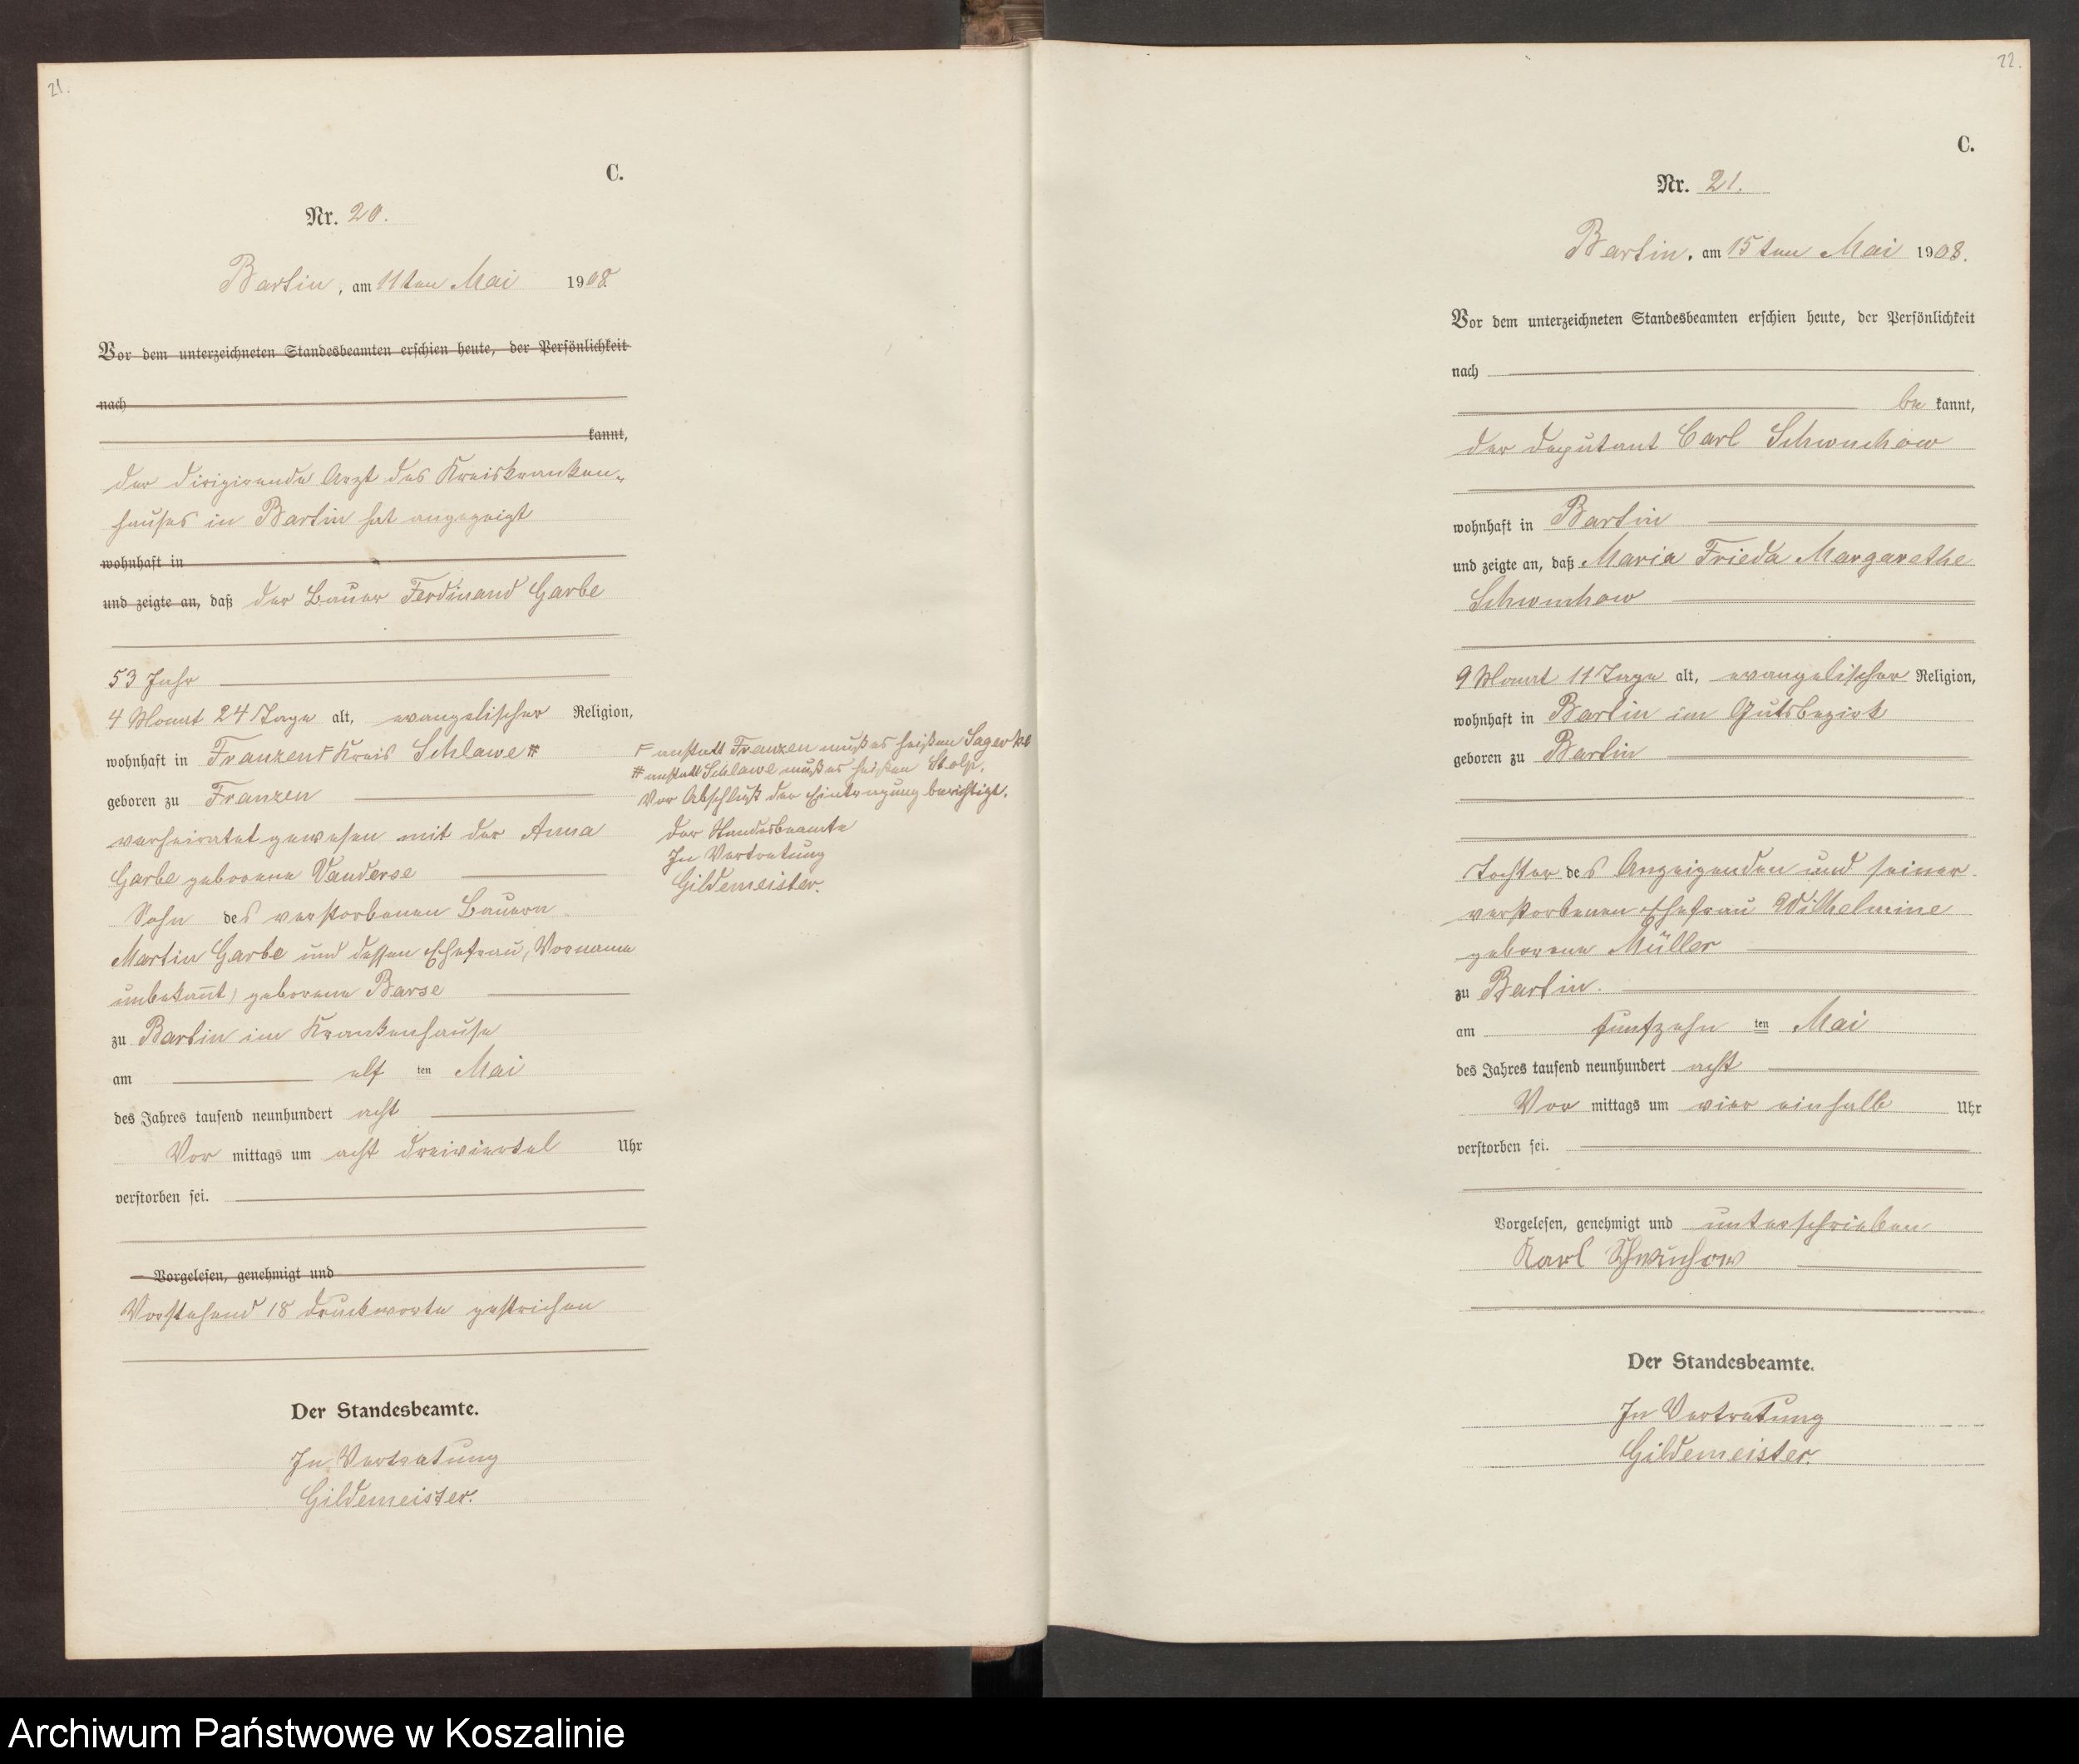 21.
C.
Nr. 20.
Bartin, am 11ten Mai 1908.
Vor dem unterzeichneten Standesbeamten erschien heute, der Persönlichkeit
nach
kannt,
der dirigirende Arzt des Kreiskranken-
hauses in Bartin hat angezeigt
wohnhaft in
und zeigte an, daß der Bauer Ferdinand Garbe
53 Jahr
4 Monat 24 Tage alt, evangelischer Religion,
wohnhaft in Franzen Γ Kreis Schlawe #
geboren zu Franzen
verheiratet gewesen mit der Anna
Garbe geborene Vanderse
Sohn des verstorbenen Bauern
Martin Garbe und dessen Ehefrau, Vorname
unbekannt) geborene Barse
zu Bartin im Krankenhause
am elf ten Mai
des Jahres tausend neunhundert acht
Vor mittags um acht dreiviertel Uhr
verstorben sei.
Vorgelesen, genehmigt und
Vorstehend 18 Druckworte gestrichen
Der Standesbeamte.
In Vertretung
Gildemeister.
Γ anstatt Franzen muß es heißen Sagerke
# anstatt Schlawe muß es heißen Stolp.
Vor Abschluß der Eintragung berichtigt.
Der Standesbeamte
In Vertretung
Gildemeister.
22.
C.
Nr. 21.
Bartin, am 15ten Mai 1908.
Vor dem unterzeichneten Standesbeamten erschien heute, der Persönlichkeit
nach
be kannt,
der Deputant Carl Schwuchow
wohnhaft in Bartin
und zeigte an, daß Maria Frieda Margarethe
Schwuchow
9 Monat 11 Tage alt, evangelischer Religion,
wohnhaft in Bartin im Gutsbezirk
geboren zu Bartin
Tochter des Anzeigenden und seiner
verstorbenen Ehefrau Wilhelmine
geborene Müller
zu Bartin.
am fünfzehn ten Mai
des Jahres tausend neunhundert acht
Vor mittags um vier einhalb Uhr
verstorben sei.
Vorgelesen, genehmigt und unterschrieben
Karl Schwuchow
Der Standesbeamte.
In Vertretung
Gildemeister.
Archiwum Państwowe w Koszalinie